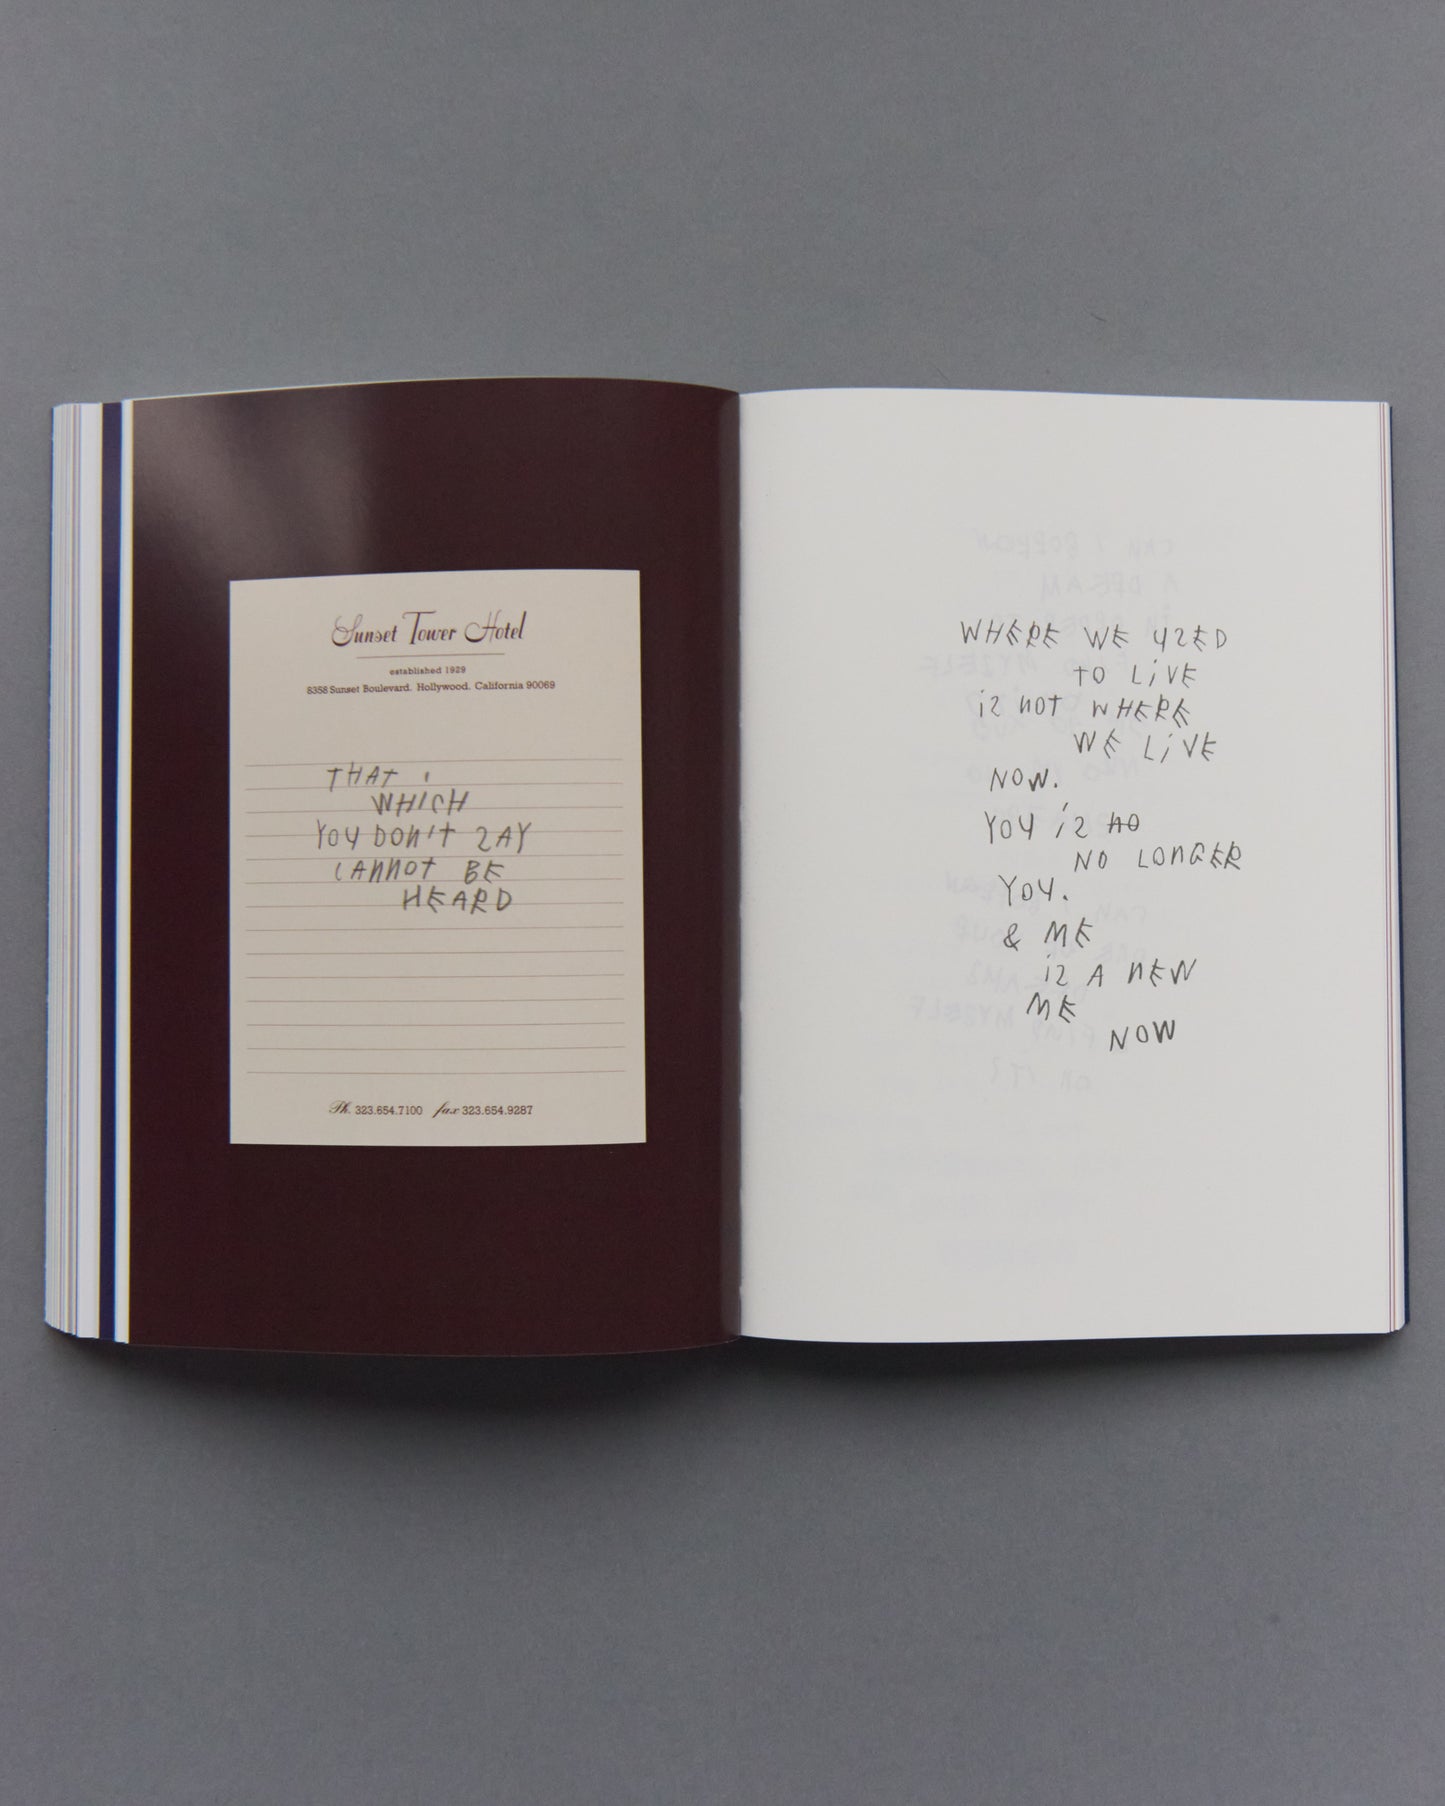 Sunset Tower Hotel
established 1929
8358 Sunset Boulevard. Hollywood. California 90069
THAT
WHICH
YOU DON'T ZAY
CANNOT BE
HEARD
Ph. 323.654.7100 fax 323.654.9287
WHERE WE UZED
TO LiVE
iZ NOT WHERE
WE LiVE
NOW.
YOU iZ NO
NO LONGER
YOU.
& ME
iZ A NEW
ME
NOW
CAN I BORROW
A DREAM
MYZELF
CAN I
FIND MYZELF
ON IT?